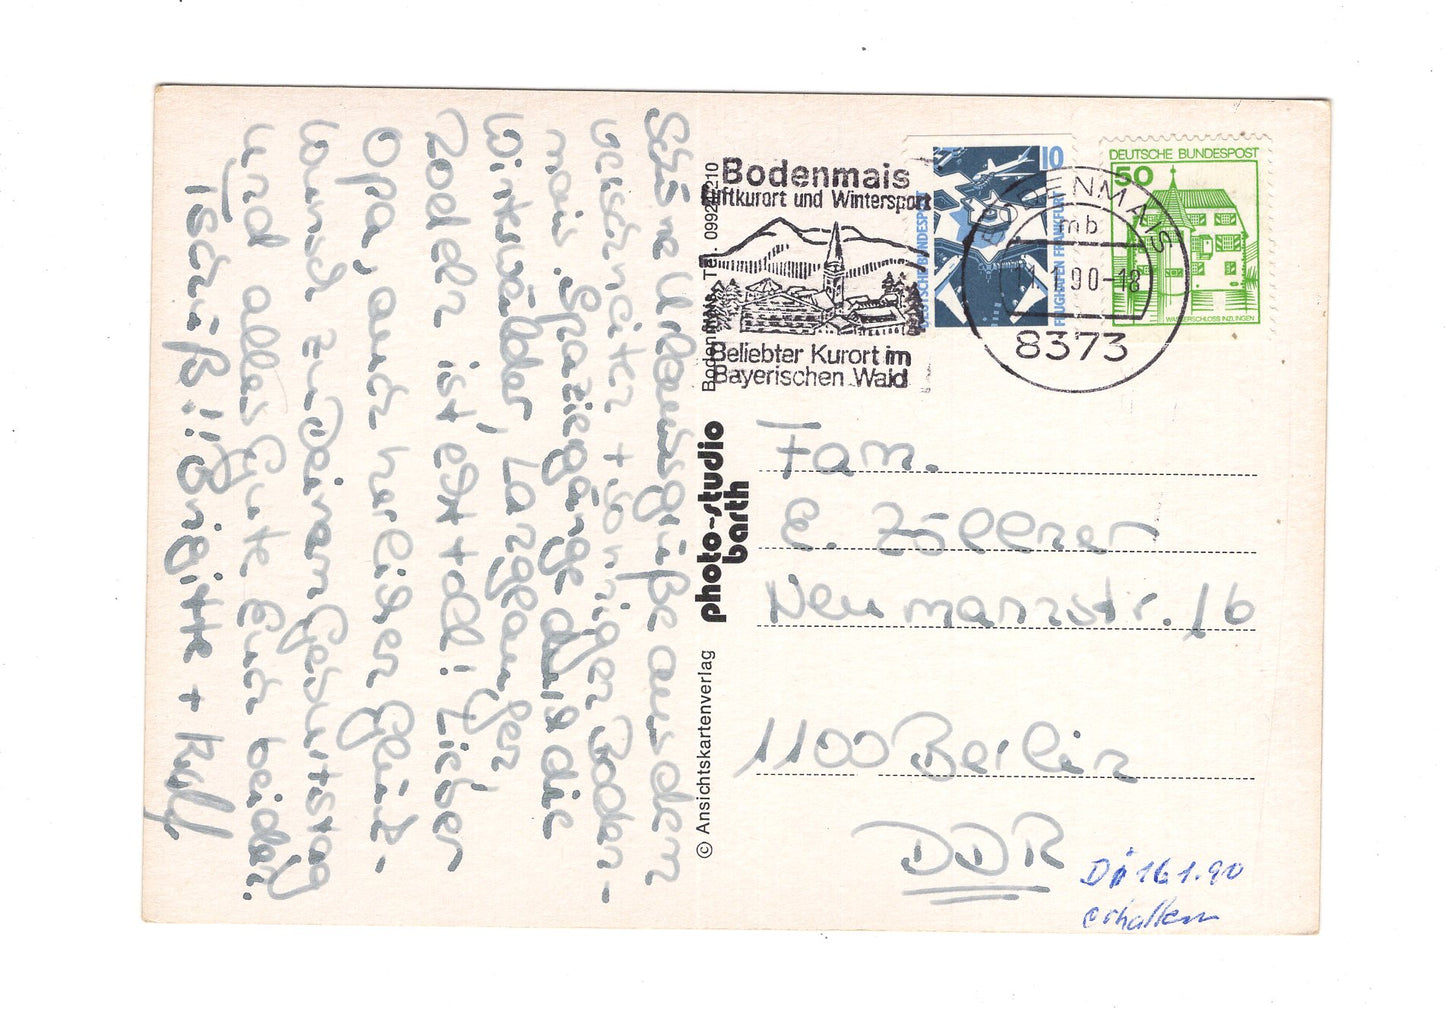 Schöne Urlaubsgrüße aus dem
verschneiten + sonnigen Boden-
mais. Spaziergänge durch die
Winterwälder, Langlaufen
Rodeln ist echt toll! Lieber
Opa, auch herzlichen Glück-
wunsch zu Deinem Geburtstag
und alles Gute Euch beiden.
Tschüß!! Brigitte + Rolf
Bodenmais, Tel. 09924/210
photo-studio
barth
© Ansichtskartenverlag
Bodenmais
Luftkurort und Wintersport
Beliebter Kurort im
Bayerischen Wald
10
DEUTSCHE BUNDESPOST
FLUGHAFEN FRANKFURT
BODENMAIS
mb
11.1.90-18
8373
DEUTSCHE BUNDESPOST
50
WASSERSCHLOSS INZLINGEN
Fam.
E. Zöllner
Neumannstr. 16
1100 Berlin
DDR
Di 16.1.90
erhalten